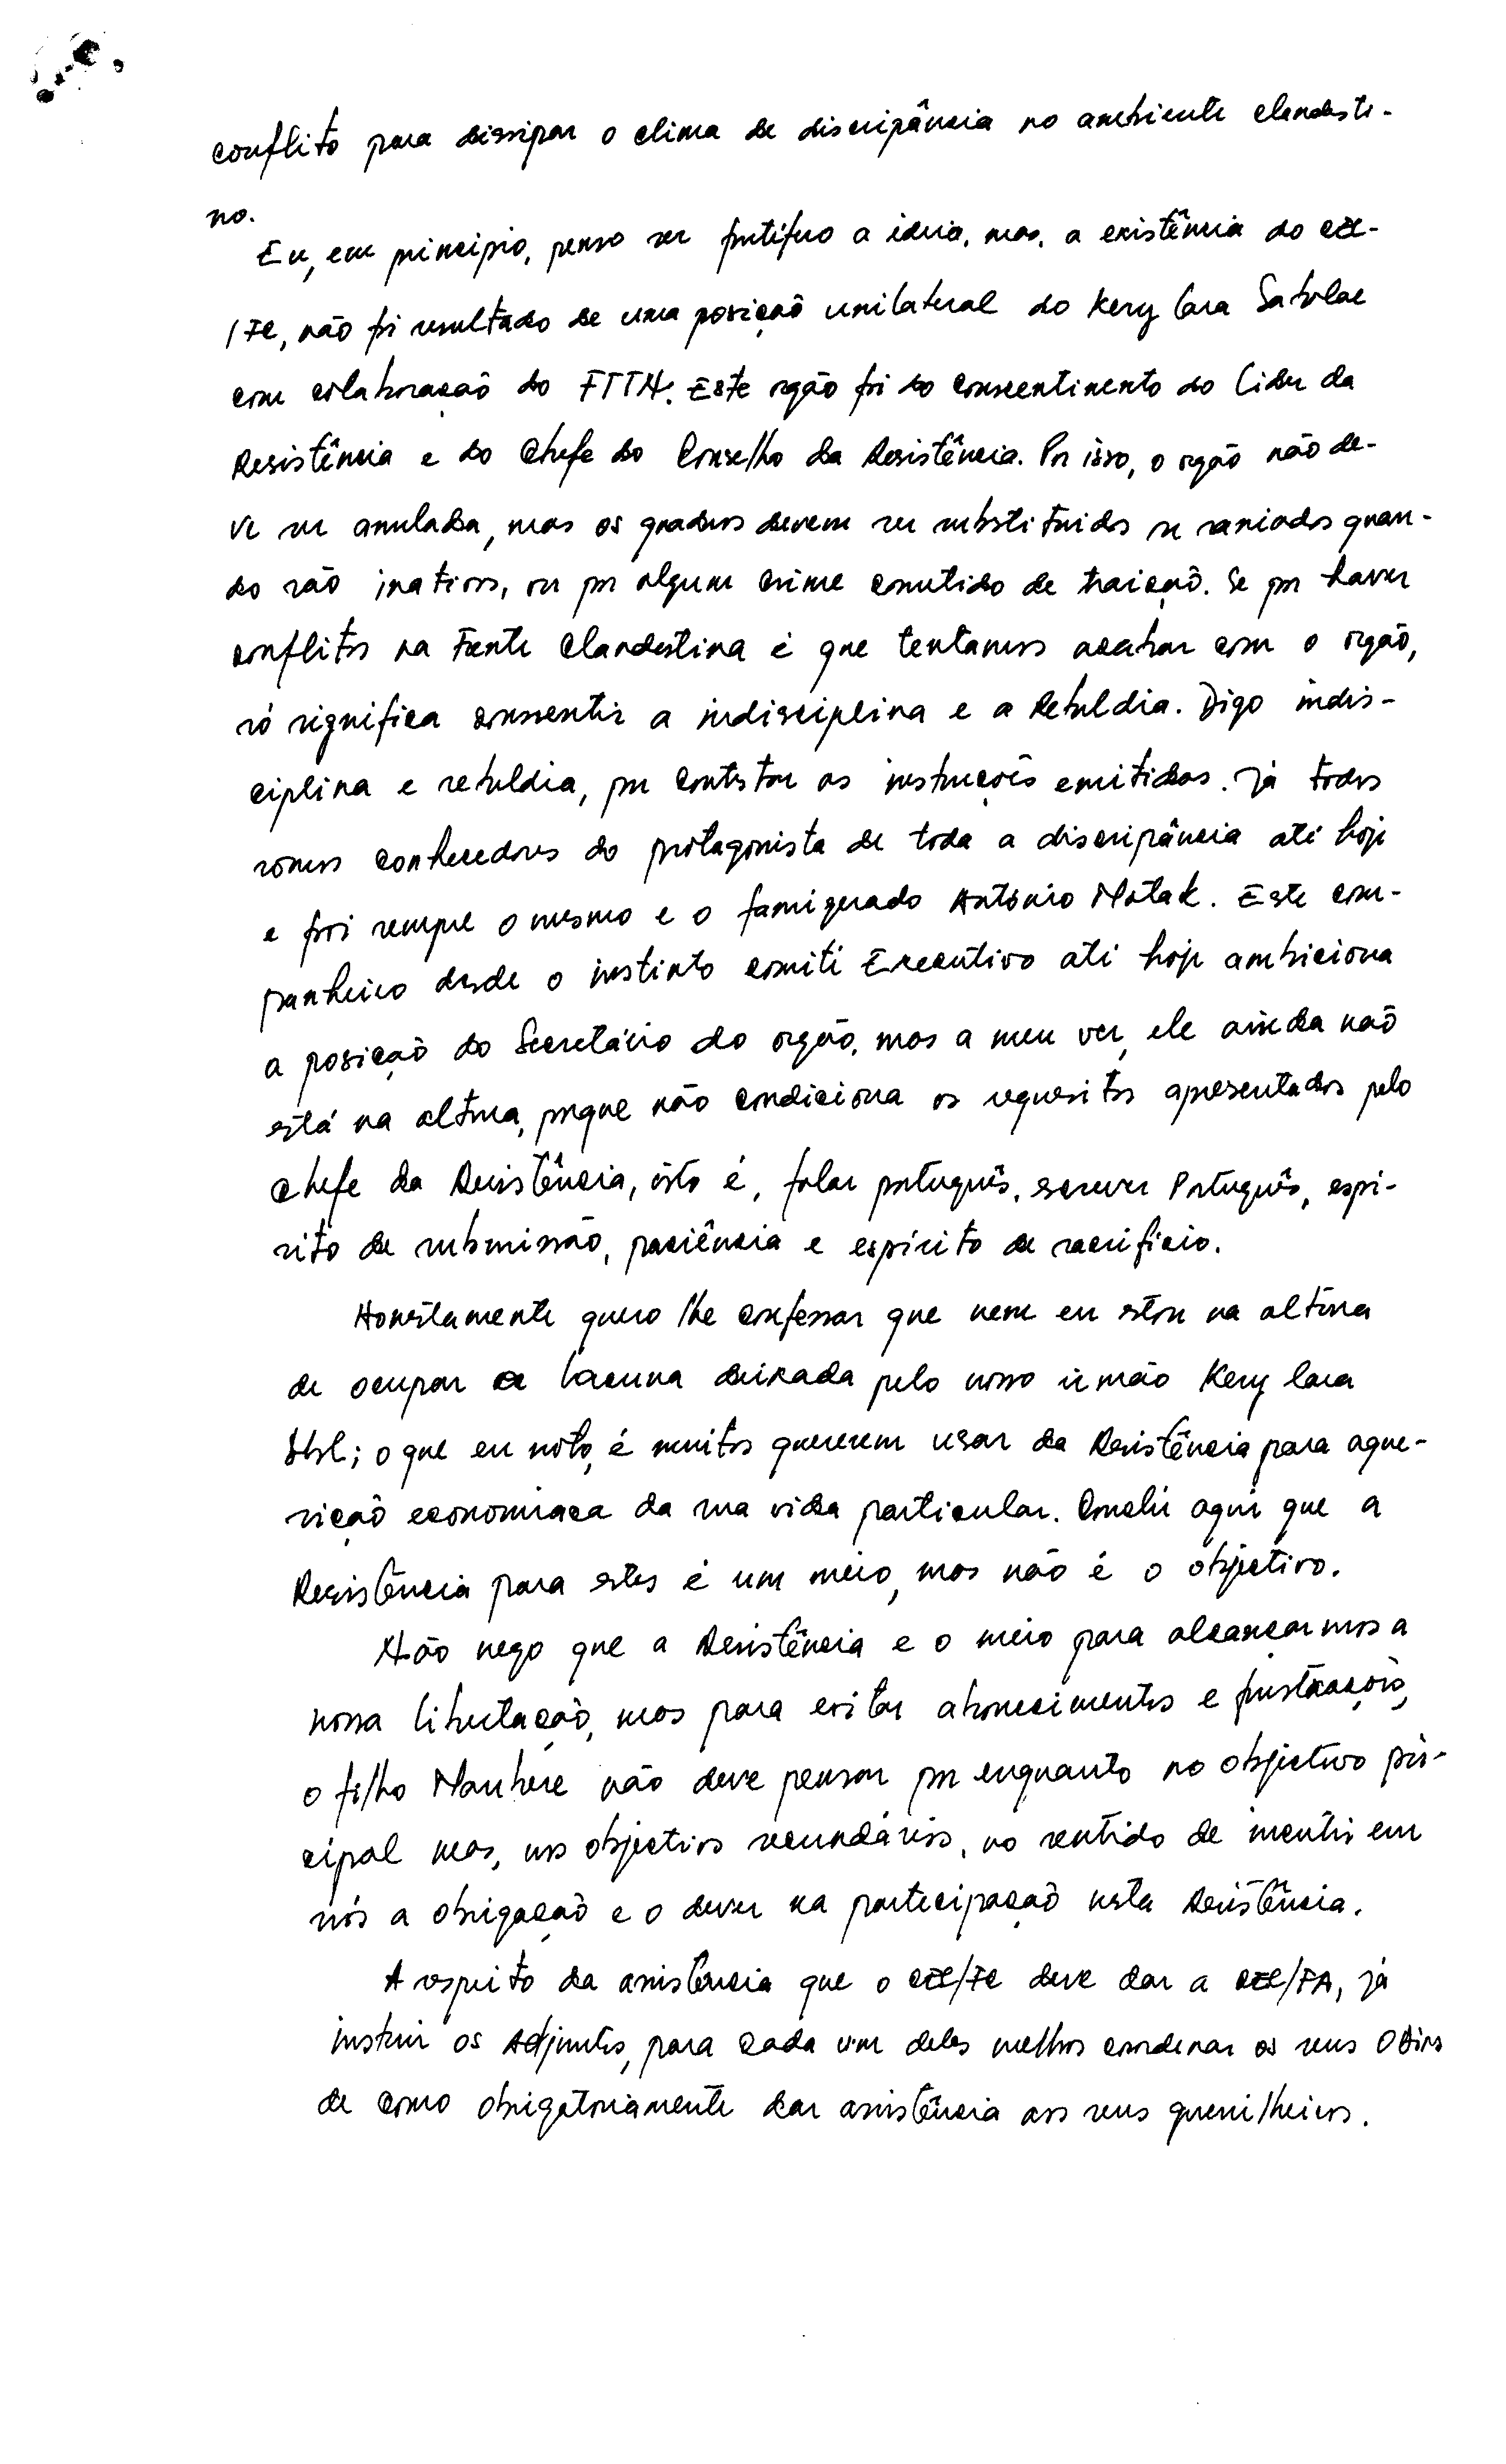 conflito para dissipar o clima de discripância no ambiente clandesti-
no.
Eu, em principio, penso ser frutífero a ideia, mas, a existência do CEL-
/FC, não foi resultado de uma posiçaõ unilateral do Kery Lara Sabolae
com colaboraçaõ do FTTN. Este orgão foi do consentimento do Lider da
Resistência e do Chefe do Conselho da Resistência. Por isso, o orgão não de-
ve ser anulada, mas os quadros devem ser substituidos se variados quan-
do são inativos, ou por algum crime cometido de traiçaõ. Se por haver
conflitos na Frente Clandestina é que tentamos acabar com o orgão,
só significa consentir a indisciplina e a Rebeldia. Digo indis-
ciplina e rebeldia, por contestar as instruçoẽs emitidas. Já todos
somos conhecedores do protagonista de toda a discripância até hoje
e foi sempre o mesmo e o famigerado António Matak. Este com-
panheiro desde o instinto comité Executivo até hoje ambiciona
a posiçaõ do Secretário do orgão, mas a meu ver, ele ainda naõ
está na altura, porque não condiciona os requesitos apresentados pelo
Chefe da Resistência, isto é, falar português, escrever Português, espi-
rito de submissão, paciência e espírito de sacrificio.
Honestamente quero lhe confessar que nem eu estou na altura
de ocupar a lacuna deixada pelo nosso irmão Kery Lara
Sbl; o que eu noto, é muitos quererem usar da Resistência para aque-
siçaõ economiaca da sua vida particular. Conclui aqui que a
Resistência para estes é um meio, mas não é o objetivo.
Não nego que a Resistência e o meio para alcançarmos a
nossa libertaçaõ, mas para evitar aborrecimentos e frustraçoẽs,
o filho Mauhere não deve pensar por enquanto no objectivo prin-
cipal mas, nos objectivos secundários, no sentido de incutir em
nós a obrigaçaõ e o dever na participaçaõ nesta Resistência.
A respeito da assistência que o CEL/FC deve dar a CEL/FA, já
instrui os Adjuntos, para cada um deles melhor coordenar os seus
de como obrigatoriamente dar assistência aos seus guerrilheiros.